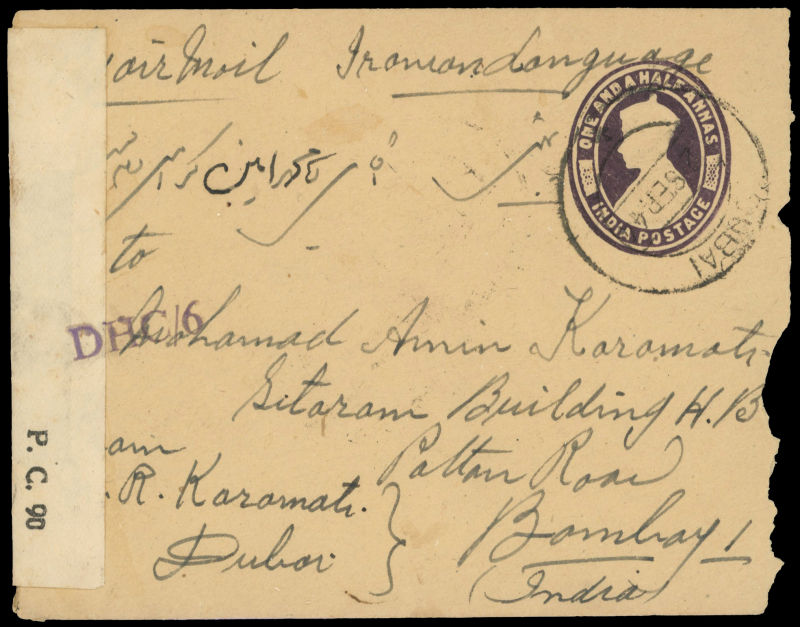 air Mail Iranian Language
ONE AND A HALF ANNAS
INDIA POSTAGE
SEP 4
DUBAI
محمد امین
to
DHC/6
Mohamad Amin Karamati
Sitaram Building H.B
Pattan Road
Bombay 1
(India)
am
. R. Karamati.
Dubai
P. C. 90